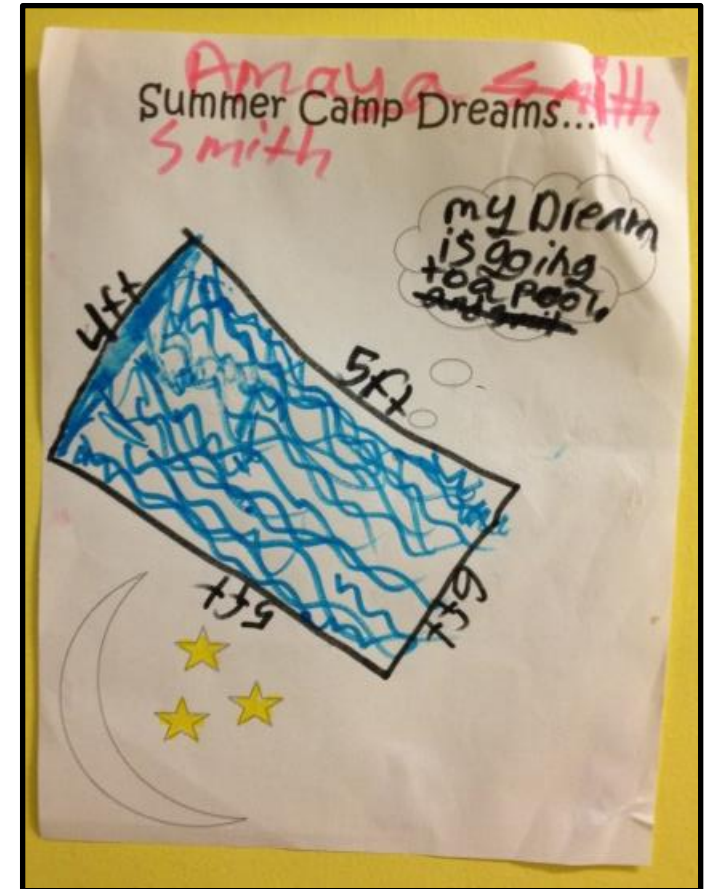 Amaya Smith
Summer Camp Dreams...
Smith
my Dream
is going
to a pool.
4ft
5ft
5ft
6ft